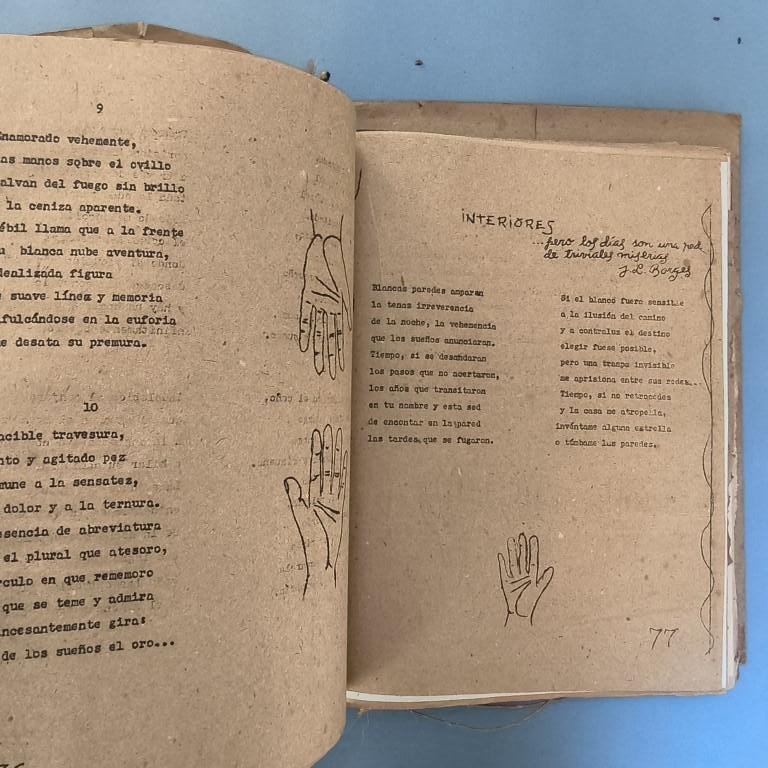 9
Enamorado vehemente,
as manos sobre el ovillo
alvan del fuego sin brillo
la ceniza aparente.
ébil llama que a la frente
u blanca nube aventura,
dealizada figura
e suave línea y memoria
ifulcándose en la euforia
e desata su premura.
10
acible travesura,
nto y agitado pez
mune a la sensatez,
dolor y a la ternura.
esencia de abreviatura
el plural que atesoro,
rculo en que rememoro
que se teme y admira
ncesantemente gira:
de los sueños el oro...
INTERIORES
...pero los días son una red
de triviales miserias
J.L. Borges
Blancas paredes amparan
la tenaz irreverencia
de la noche, la vehemencia
que los sueños anunciaran.
Tiempo, si se desandaran
los pasos que no acertaron,
los años que transitaron
en tu nombre y esta sed
de encontar en la pared
las tardes que se fugaron.
Si el blanco fuera sensible
a la ilusión del camino
y a contraluz el destino
elegir fuese posible,
pero una trampa invisible
me aprisiona entre sus redes...
Tiempo, si no retrocedes
y la casa me atropella,
invéntame alguna estrella
o túmbame las paredes.
77